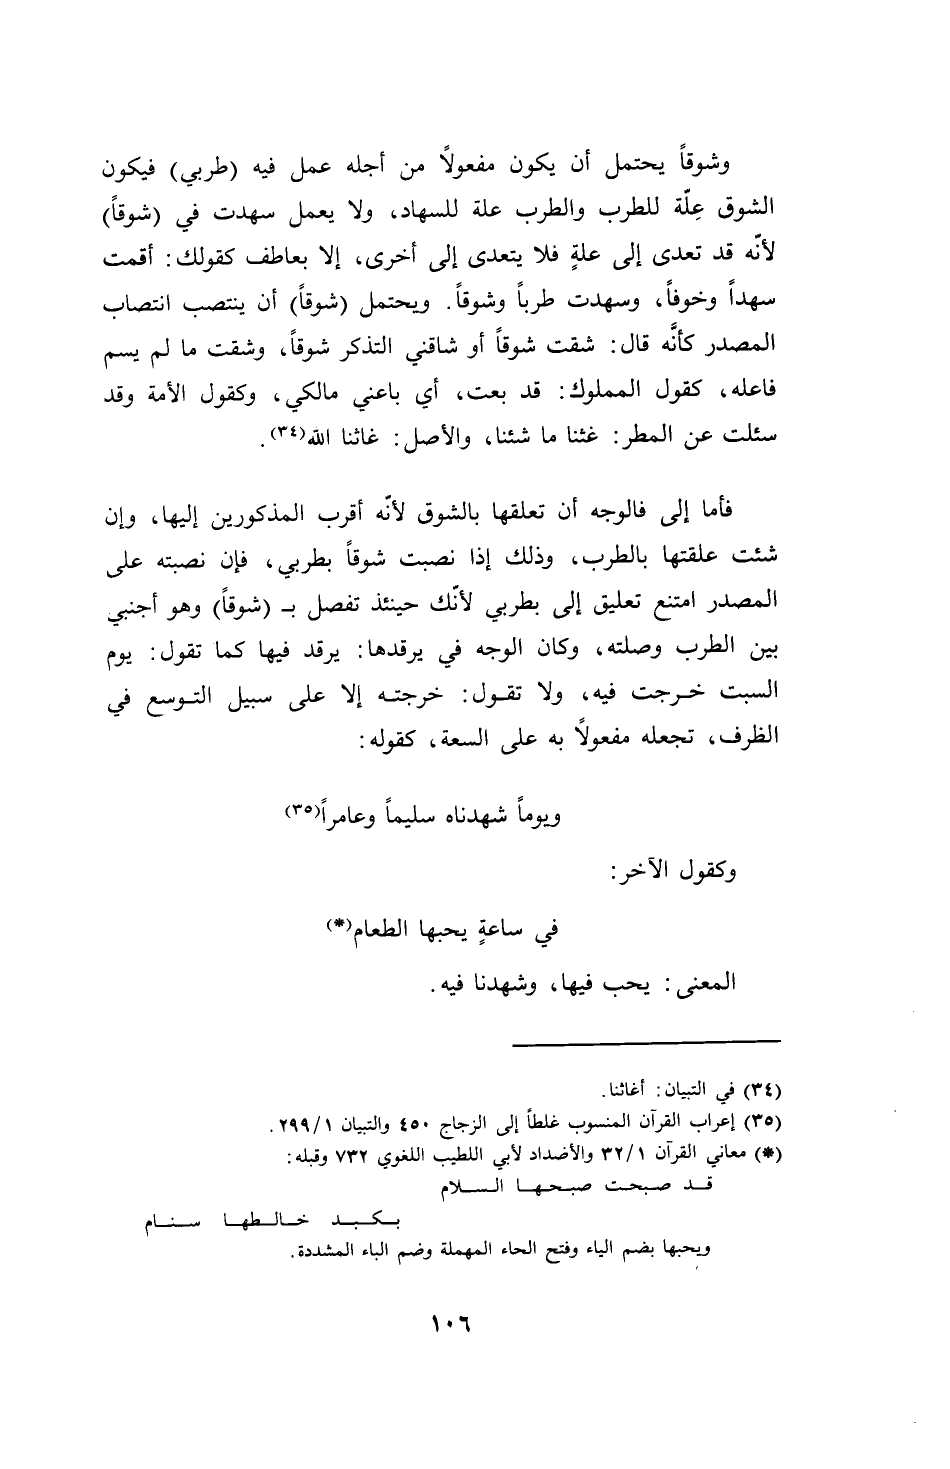 وشوقاً يحتمل أن يكون مفعولاً من أجله عمل فيه (طربي) فيكون
الشوق عِلّة للطرب والطرب علة للسهاد، ولا يعمل سهدت في (شوقاً)
لأنّه قد تعدى إلى علةٍ فلا يتعدى إلى أخرى، إلا بعاطف كقولك: أقمت
سهداً وخوفاً، وسهدت طرباً وشوقاً. ويحتمل (شوقاً) أن ينتصب انتصاب
المصدر كأنَّه قال: شقت شوقاً أو شاقني التذكر شوقاً، وشقت ما لم يسم
فاعله، كقول المملوك: قد بعت، أي باعني مالكي، وكقول الأمة وقد
سئلت عن المطر: غثنا ما شئنا، والأصل: غاثنا الله(٣٤).
فأما إلى فالوجه أن تعلقها بالشوق لأنّه أقرب المذكورين إليها، وإن
شئت علقتها بالطرب، وذلك إذا نصبت شوقاً بطربي، فإن نصبته على
المصدر امتنع تعليق إلى بطربي لأنّك حينئذ تفصل بـ (شوقاً) وهو أجنبي
بين الطرب وصلته، وكان الوجه في يرقدها: يرقد فيها كما تقول: يوم
السبت خرجت فيه، ولا تقول: خرجته إلا على سبيل التوسع في
الظرف، تجعله مفعولاً به على السعة، كقوله:
ويوماً شهدناه سليماً وعامراً(٣٥)
وكقول الآخر:
في ساعةٍ يحبها الطعام(*)
المعنى: يحب فيها، وشهدنا فيه.
(٣٤) في التبيان: أغاثنا.
(٣٥) إعراب القرآن المنسوب غلطاً إلى الزجاج ٤٥٠ والتبيان ٢٩٩/١.
(*) معاني القرآن ٣٢/١ والأضداد لأبي اللطيب اللغوي ٧٣٢ وقبله:
قد صبحت صبحها السلام
بكبد خالطها سنام
ويحبها بضم الياء وفتح الحاء المهملة وضم الباء المشددة.
١٠٦